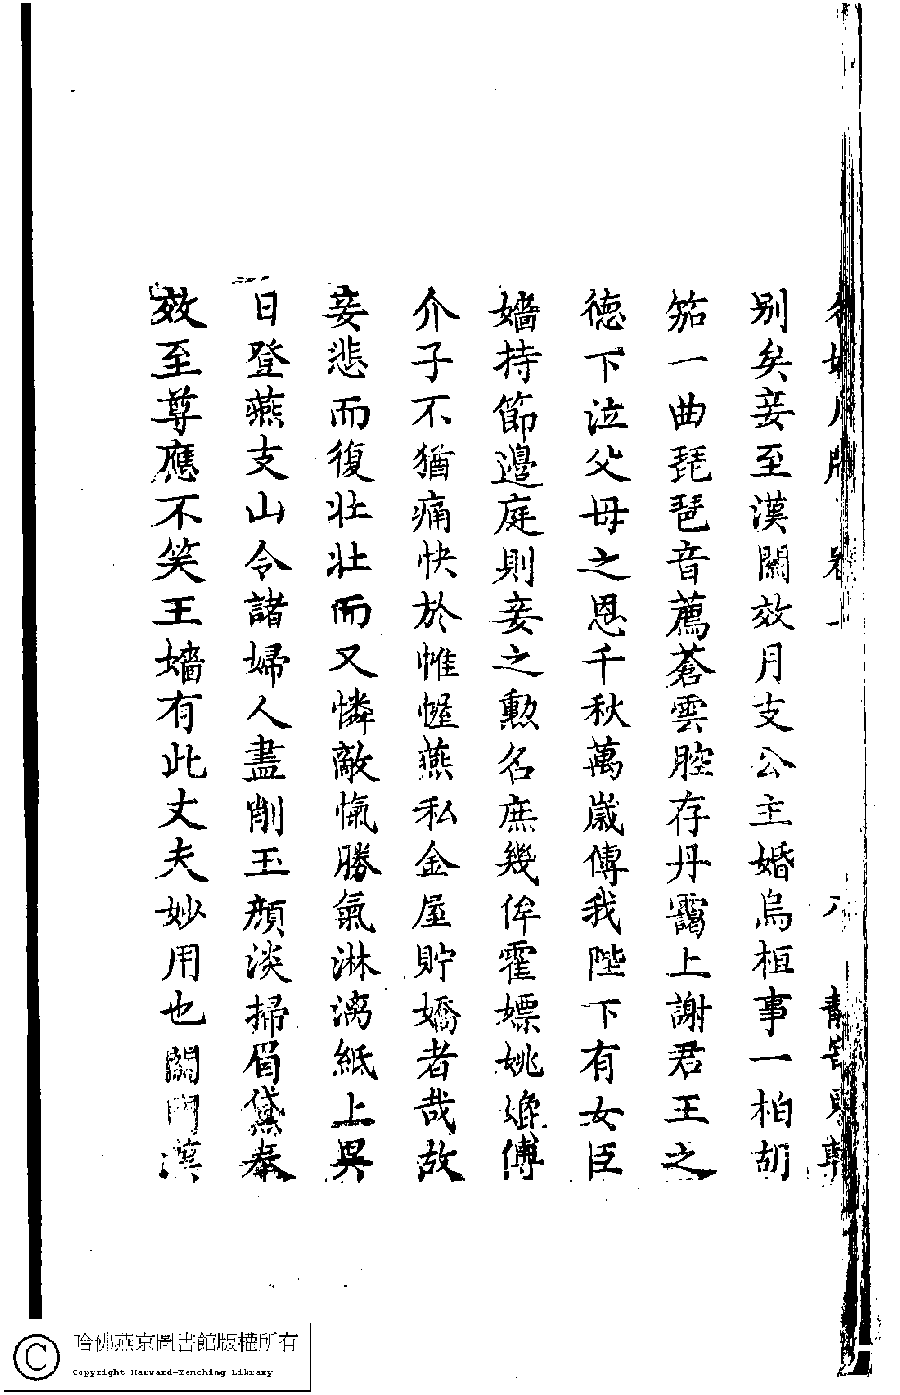 别矣妾至漢關效月支公主婚烏桓事一柏胡
笳一曲琵琶音薦蒼雲腔存丹靄上謝君王之
德下泣父母之恩千秋萬歲傳我陛下有女臣
嬙持節邊庭則妾之勳名庶幾侔霍嫖姚傅
介子不猶痛快於帷幄燕私金屋貯嬌者哉故
妾悲而復壯壯而又憐敵愾勝氣淋漓紙上異
日登燕支山令諸婦人盡削玉顏淡掃眉黛奉
效至尊應不笑王嬙有此丈夫妙用也關門漢
哈佛燕京圖書館版權所有
Copyright Harvard-Yenching Library